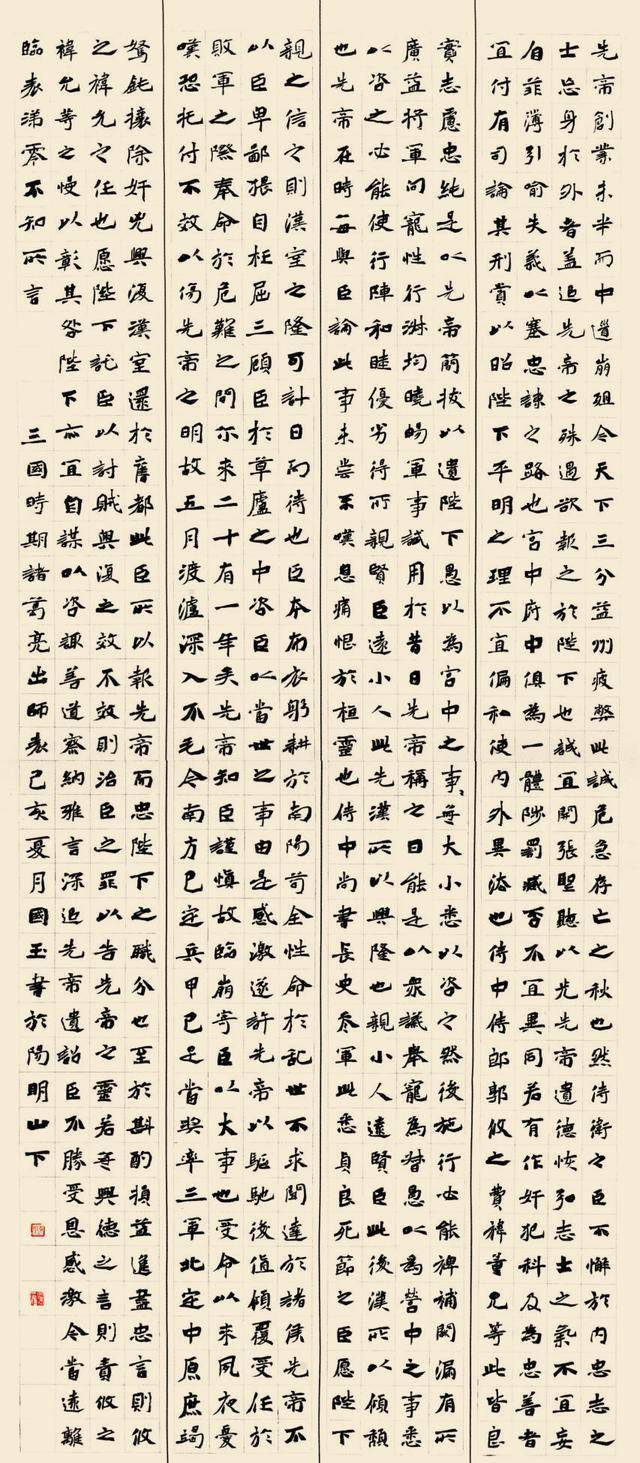 先帝創業未半而中道崩殂今天下三分益州疲弊此誠危急存亡之秋也然侍衛之臣不懈於內忠志之
士忘身於外者蓋追先帝之殊遇欲報之於陛下也誠宜開張聖聽以光先帝遺德恢弘志士之氣不宜妄
自菲薄引喻失義以塞忠諫之路也宮中府中俱為一體陟罰臧否不宜異同若有作奸犯科及為忠善者
宜付有司論其刑賞以昭陛下平明之理不宜偏私使內外異法也侍中侍郎郭攸之費禕董允等此皆良
實志慮忠純是以先帝簡拔以遺陛下愚以為宮中之事、每大小悉以咨之然後施行必能裨補闕漏有所
廣益將軍向寵性行淑均曉暢軍事試用於昔日先帝稱之曰能是以眾議舉寵為督愚以為營中之事悉
以咨之必能使行陣和睦優劣得所親賢臣遠小人此先漢所以興隆也親小人遠賢臣此後漢所以傾頹
也先帝在時每與臣論此事未嘗不嘆息痛恨於桓靈也侍中尚書長史參軍此悉貞良死節之臣愿陛下
親之信之則漢室之隆可計日而待也臣本布衣躬耕於南陽苟全性命於亂世不求聞達於諸侯先帝不
以臣卑鄙猥自枉屈三顧臣於草廬之中咨臣以當世之事由是感激遂許先帝以驅馳後值傾覆受任於
敗軍之際奉命於危難之間尔來二十有一年矣先帝知臣謹慎故臨崩寄臣以大事也受命以來夙夜憂
嘆恐托付不效以傷先帝之明故五月渡瀘深入不毛今南方已定兵甲已足當獎率三軍北定中原庶竭
駑鈍攘除奸兇興復漢室還於舊都此臣所以報先帝而忠陛下之職分也至於斟酌損益進盡忠言則攸
之禕允之任也愿陛下託臣以討賊興復之效不效則治臣之罪以告先帝之靈若無興德之言則責攸之
禕允等之慢以彰其咎陛下亦宜自謀以咨諏善道察納雅言深追先帝遺詔臣不勝受恩感激今當遠離
臨表涕零不知所言 三國時期諸葛亮出師表己亥夏月國玉書於陽明山下